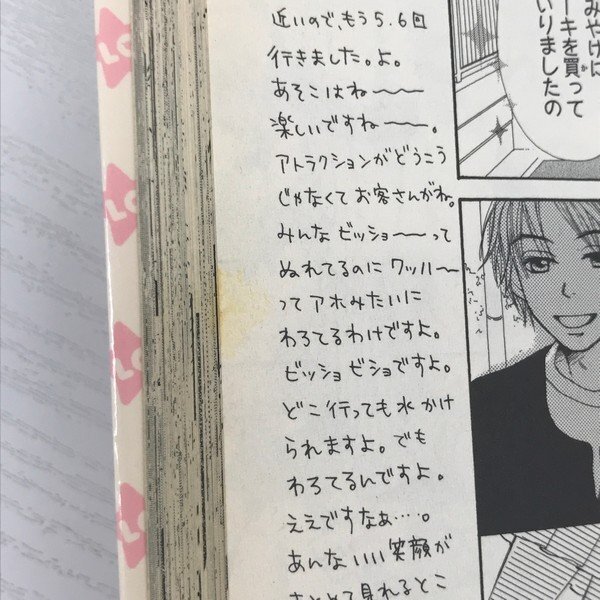 近いので、もう5.6回
行きました。よ。
あそこはね〜〜
楽しいですね〜〜。
アトラクションがどうこう
じゃなくて お客さんがね。
みんな ビッショ〜〜って
ぬれてるのに ワッハ〜
って アホみたいに
わろてるわけですよ。
ビッショ ビショですよ。
どこ行っても水 かけ
られますよ。でも
わろてるんですよ。
ええですなぁ…。
あんな いい 笑顔が
見れるとこ
みやげに
ーキを買って
いりましたの